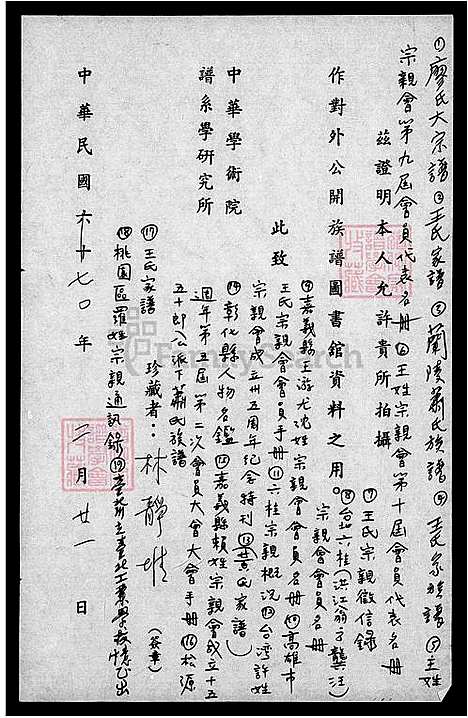 ①廖氏大宗譜②王氏家譜③蘭陵蕭氏族譜④王氏家譜⑤王姓
宗親會第九屆會員代表名冊⑥王姓宗親會第十屆會員代表名冊
茲證明本人允許貴所拍攝
⑦王氏宗親徵信錄
作對外公開族譜圖書館資料之用。
⑧台北六桂(洪江翁方龔汪)
宗親會會員名冊
此致
⑨嘉義縣王游尤沈姓宗親會會員名冊⑩高雄市
王氏宗親會會員手冊⑪六桂宗親概況⑫台灣許姓
宗親會成立卅五周年紀念特刊⑬黃氏家譜)
中華學術院
譜系學研究所
⑭彰化縣人物名鑑⑮嘉義縣賴姓宗親會成立十五
週年第五屆第二次會員大會大會手冊⑯松源
五十郎公派下蕭氏族譜
珍藏者：林靜 (簽章)
⑰王氏家譜
⑱桃園區羅姓宗親通訊錄⑲臺北工業學校
中華民國七〇年二月廿一日